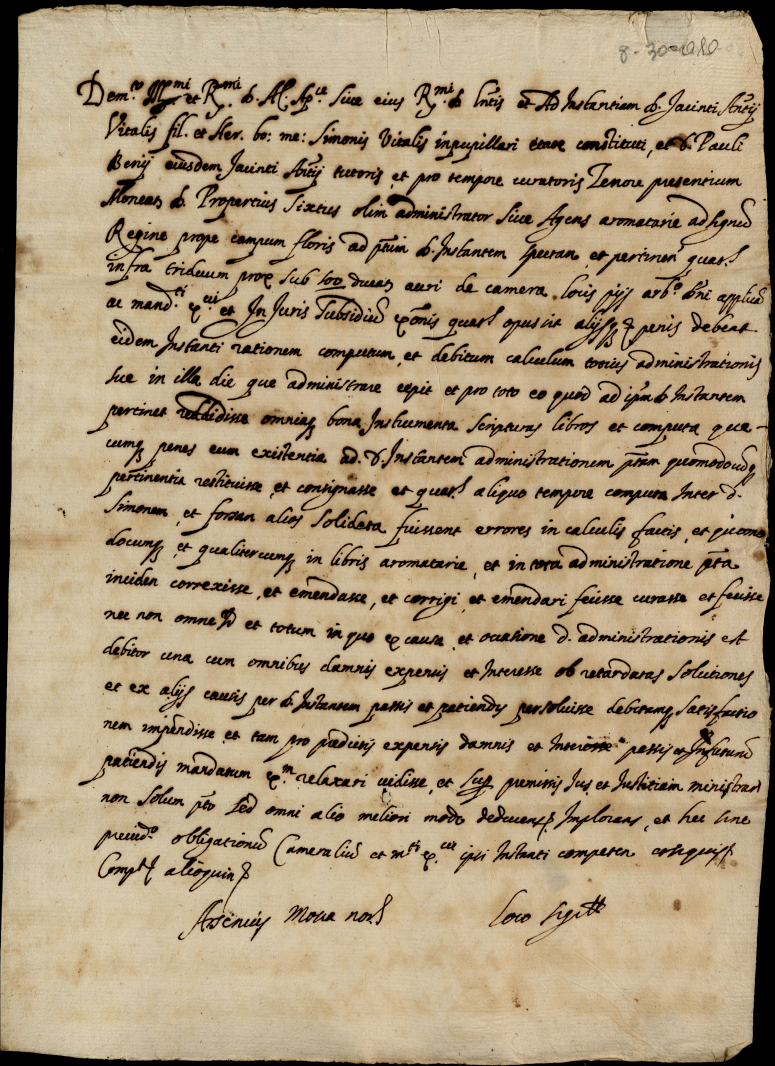 8-30-1610
Dem.to Ill.mi et R.mi d. A. C. sive eius R.mi d. Lntis et Ad Instantiam d. Jacinti Antij
Vitalis fil. et Her. bo: me: Simonis Vitalis in pupillari etate constituti, et d. Pauli
Benij eiusdem Jacinti Antij tutoris, et pro tempore curatoris Tenore presentium
Moneas d. Propertius Sixtus olim administrator sive Agens aromatarie ad signū
Regine prope campum floris ad ptum d. Instantem spectan. et pertinen. quat.s
infra triduum prox sub 500 ducas auri de camera locis pijs arb.o Dni applicā
ac mand.ti ex.ui et In Juris Subsidiū exonis quat.s opus sit alijsq penis debeat
eidem Instanti rationem computum, et debitum calculum totius administrationis
sue in illa die que administrare cepit et pro toto eo quod ad ipm d. Instantem
pertinet reddidisse omniaq bona Instrumenta scripturas libros et computa que-
cumq penes eum existentia ad d. Instantem administrationem ptam quomodocūq
pertinentia restituisse, et consignasse et quat.s aliquo tempore computa Inter d.
Simonem, et forsan alios solidata fuissent errores in calculis factis, et quomo
documq, et qualitercumq in libris aromatarie, et in tota administratione pta
inciden correxisse, et emendasse, et corrigi, et emendari fecisse curasse et fecisse
nec non omne id et totum in quo ex causa, et occasione d. administrationis est
debitor una cum omnibus damnis expensis et Interesse ob retardatas solutiones
et ex alijs causis per d. Instantem passis et patiendis persolvisse debitamq satisfactio
nem impendisse, et tam pro predictis expensis damnis et Interesse passis et In futurū
patiendis mandatum ex.m relaxari vidisse, et sup premissis Jus et Iustitiam ministrari
non solum pto sed omni alio meliori modo Implorans, et hec sine
preiud.o obligationū Cameraliū et m.ti ex.ui ipsi Instanti competen
alioquin
Arsenius Mova not.s Loco sigilli